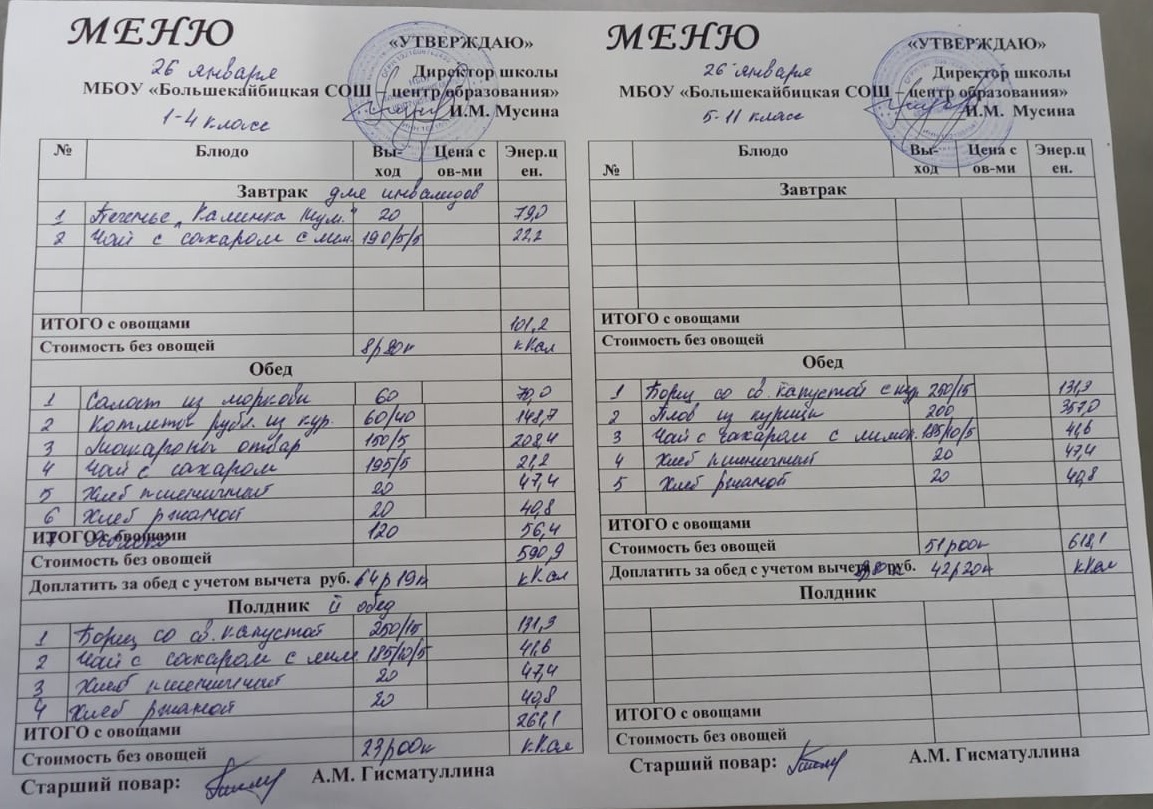 МЕНЮ
«УТВЕРЖДАЮ»
26 января
Директор школы
МБОУ «Большекайбицкая СОШ – центр образования»
И.М. Мусина
1-4 класс
№ Блюдо Вы-ход Цена с ов-ми Энер.ц ен.
Завтрак для инвалидов
1 Печенье "Калинка 20 79,0
2 Чай с сахаром с лим. 190/5/5 22,2
ИТОГО с овощами 101,2
Стоимость без овощей 8р20к кКал
Обед
1 Салат из моркови 60 70,0
2 Котлеты рубл. из кур. 60/40 148,7
3 Макароны отвар 150/5 208,4
4 Чай с сахаром 195/5 21,2
5 Хлеб пшеничный 20 47,4
6 Хлеб ржаной 20 40,8
ИТОГО с овощами 120 56,4
Стоимость без овощей 590,9
Доплатить за обед с учетом вычета руб. 64р19к кКал
Полдник II обед
1 Борщ со св. капустой 250/15 131,3
2 Чай с сахаром с лим. 185/10/5 41,6
3 Хлеб пшеничный 20 47,4
4 Хлеб ржаной 20 40,8
ИТОГО с овощами 261,1
Стоимость без овощей 23р00к кКал
Старший повар: А.М. Гисматуллина
МЕНЮ
«УТВЕРЖДАЮ»
26 января
Директор школы
МБОУ «Большекайбицкая СОШ – центр образования»
И.М. Мусина
5-11 класс
№ Блюдо Вы-ход Цена с ов-ми Энер.ц ен.
Завтрак
ИТОГО с овощами
Стоимость без овощей
Обед
1 Борщ со св. капустой с кур 250/15 131,3
2 Плов из курицы 200 357,0
3 Чай с сахаром с лимон. 185/10/5 41,6
4 Хлеб пшеничный 20 47,4
5 Хлеб ржаной 20 40,8
ИТОГО с овощами
Стоимость без овощей 51р00к 618,1
Доплатить за обед с учетом вычета руб. 42р20к кКал
Полдник
ИТОГО с овощами
Стоимость без овощей
Старший повар: А.М. Гисматуллина